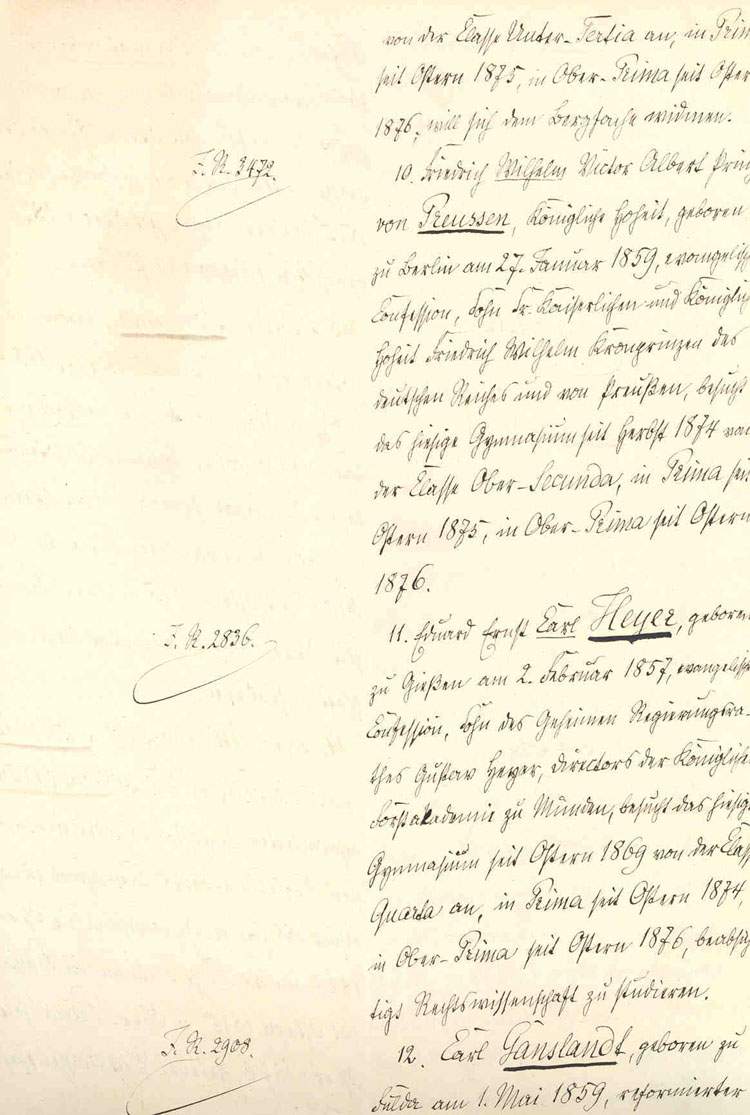 von der Classe Unter-Tertia an, in Prim
seit Ostern 1875, in Ober-Prima seit Oster
1876, will sich dem Bergfache widmen.
J. N. 3472.
10. Friedrich Wilhelm Victor Albert Prinz
von Preussen, Königliche Hoheit, geboren
zu Berlin am 27. Januar 1859, evangelisch
Confession, Sohn Sr. Kaiserlichen und Königlich
Hoheit Friedrich Wilhelm Kronprinzen des
deutschen Reiches und von Preußen, besucht
das hiesige Gymnasium seit Herbst 1874 von
der Classe Ober-Secunda, in Prima seit
Ostern 1875, in Ober-Prima seit Ostern
1876.
J. N. 2836.
11. Eduard Ernst Carl Heyer, geboren
zu Gießen am 2. Februar 1857, evangelisch
Confession, Sohn des Geheimen Regierungsra-
thes Gustav Heyer, Directors der Königlichen
Forstakademie zu Münden, besucht das hiesige
Gymnasium seit Ostern 1869 von der Classe
Quarta an, in Prima seit Ostern 1874,
in Ober-Prima seit Ostern 1876, beabsich
tigt Rechtswissenschaft zu studieren.
J. N. 2908.
12. Carl Gänslandt, geboren zu
Fulda am 1. Mai 1859, reformierter